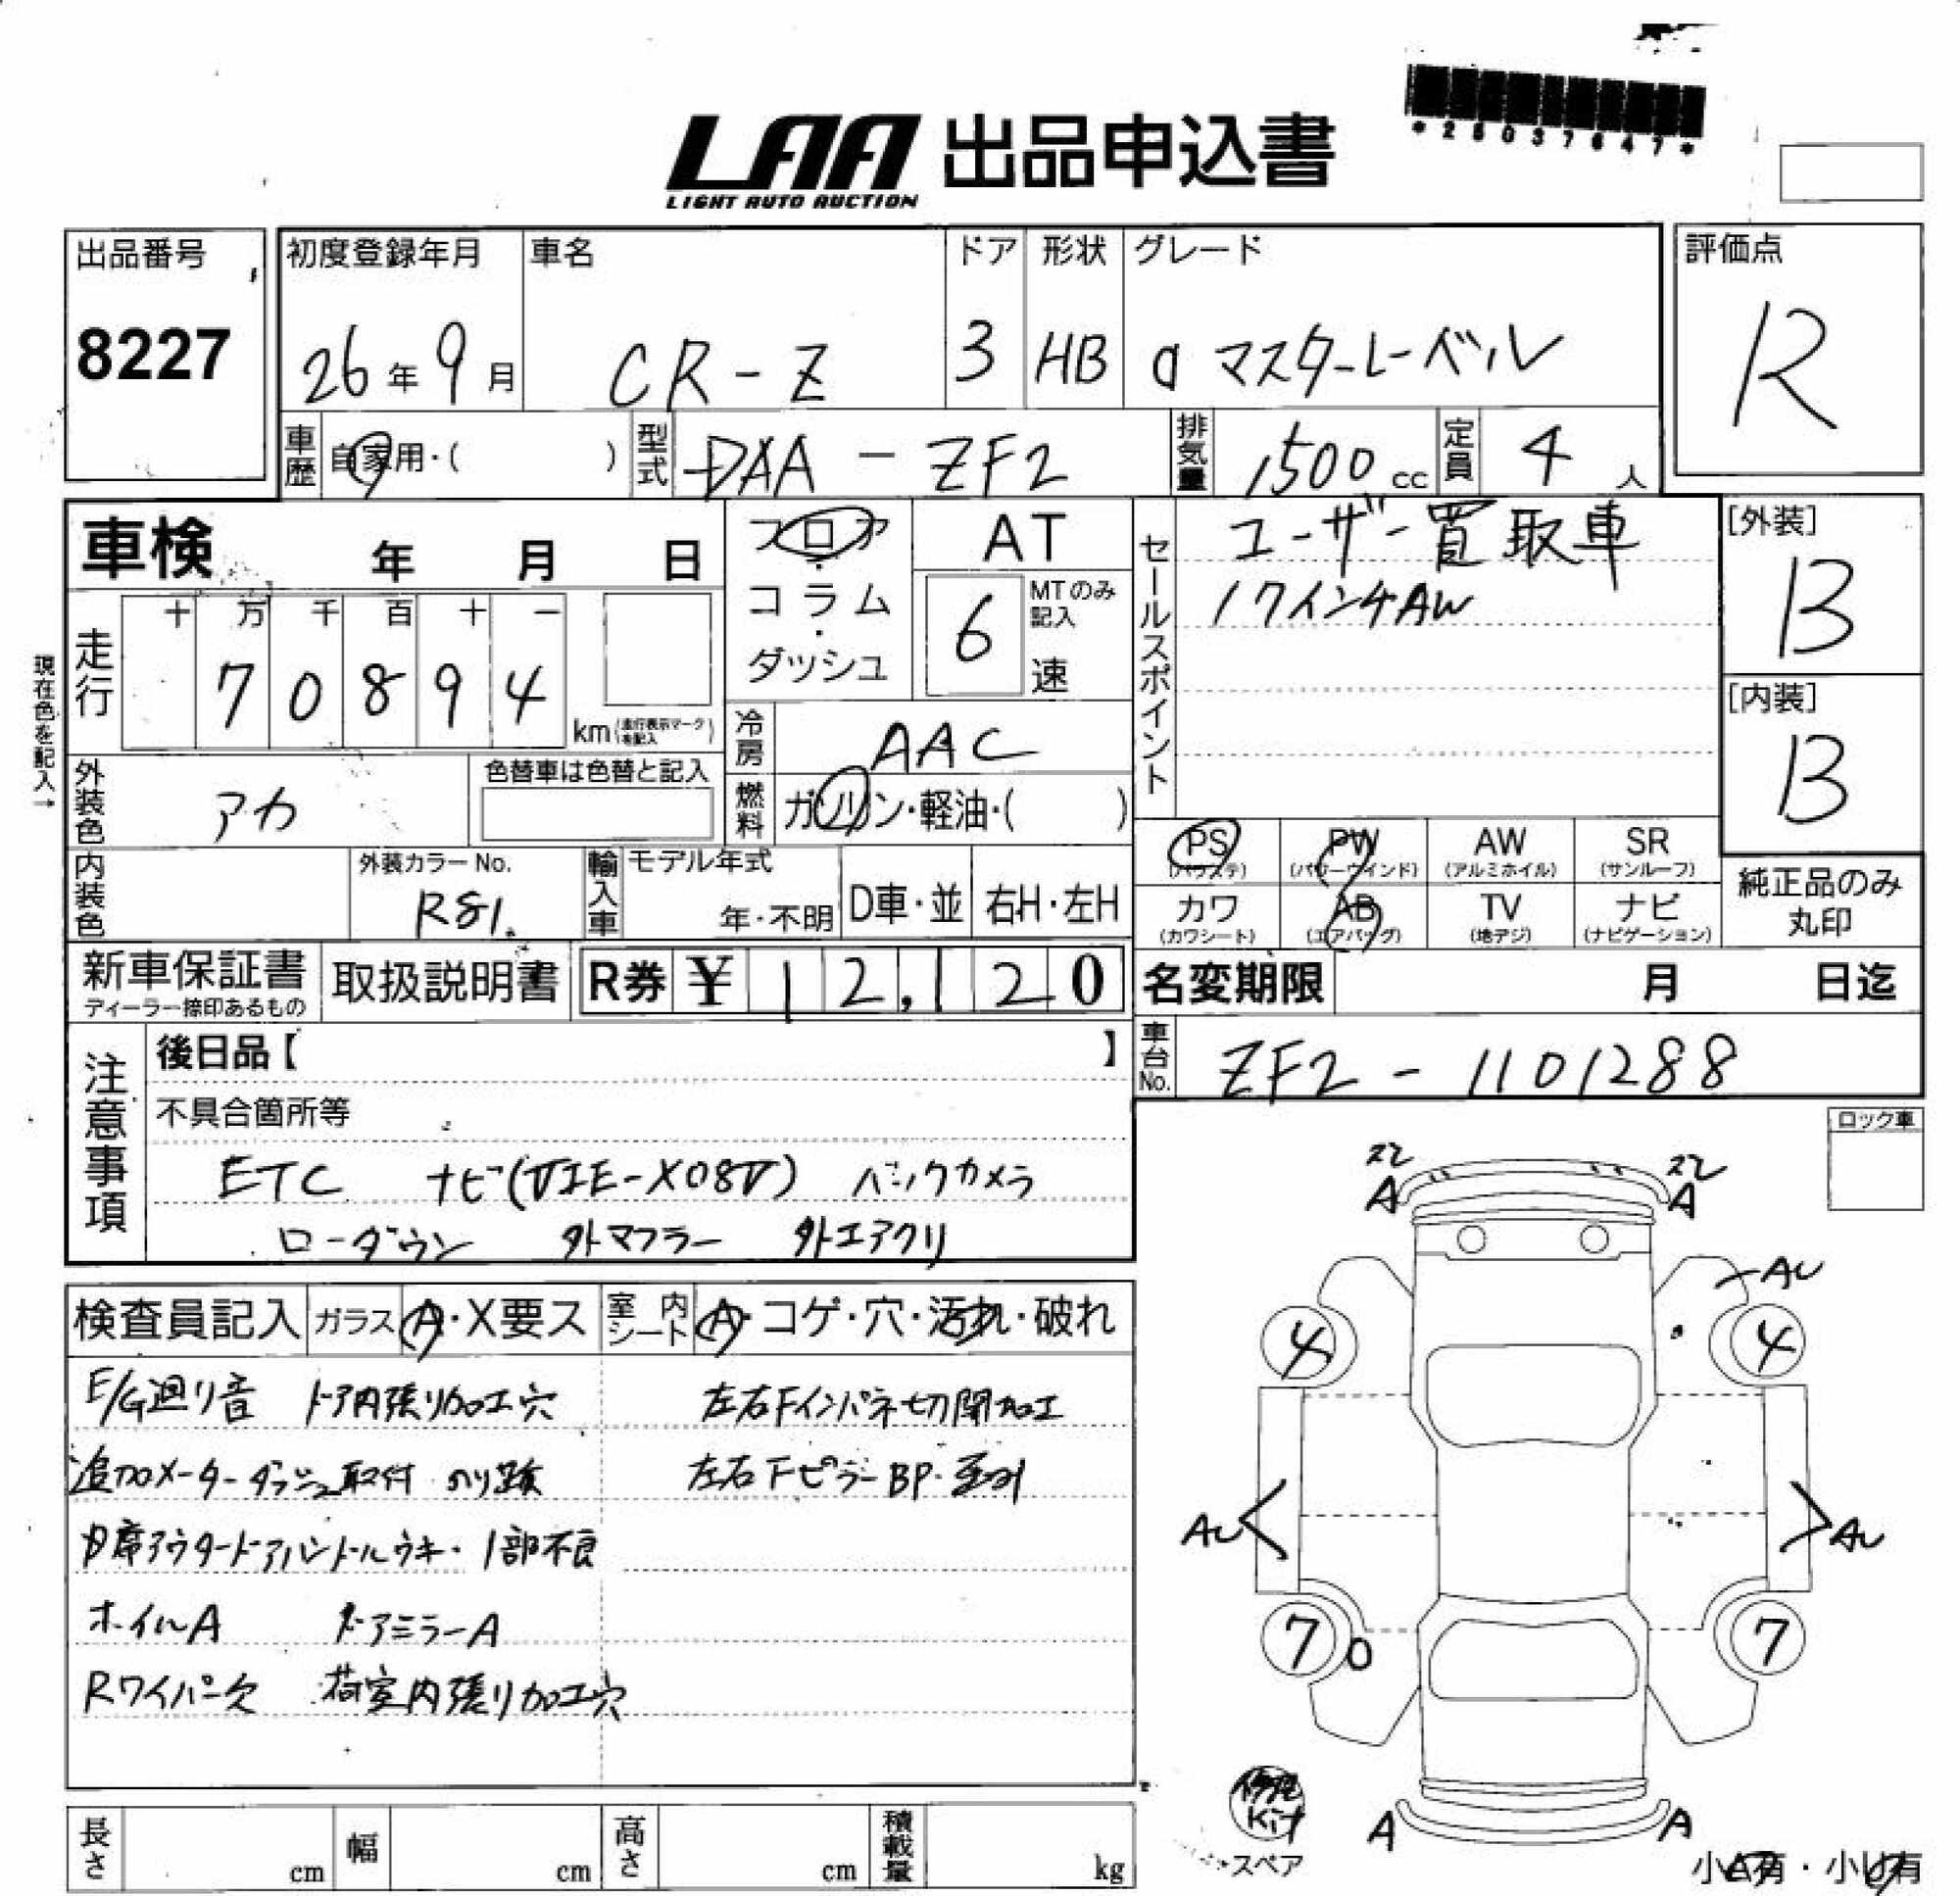 *25037647*
LAA 出品申込書
LIGHT AUTO AUCTION
出品番号
8227
初度登録年月
26年9月
車名
CR-Z
ドア
3
形状
HB
グレード
α マスターレーベル
評価点
R
車歴
自家用・( )
型式
DAA-ZF2
排気量
1500cc
定員
4人
車検 年 月 日
フロア・コラム・ダッシュ
AT
6
MTのみ記入
速
セールスポイント
ユーザー買取車
17インチAW
[外装]
B
[内装]
B
現在色を記入→
走行
十 万 千 百 十 一
7 0 8 9 4
km(走行表示マークを記入)
冷房
AAC
外装色
アカ
色替車は色替と記入
燃料
ガソリン・軽油・( )
内装色
外装カラーNo.
R81.
輸入車
モデル年式
年・不明
D車・並
右H・左H
PS
(パワステ)
PW
(パワーウインド)
AW
(アルミホイル)
SR
(サンルーフ)
カワ
(カワシート)
AB
(エアバッグ)
TV
(地デジ)
ナビ
(ナビゲーション)
純正品のみ
丸印
新車保証書
ディーラー捺印あるもの
取扱説明書
R券 ¥12,120
名変期限 月 日迄
車台No.
ZF2-1101288
注意事項
後日品【 】
不具合箇所等
ETC ナビ(VIE-X08V) バックカメラ
ローダウン 外マフラー 外エアクリ
ロック車
検査員記入
ガラス
A・X要ス
室内シート
A・コゲ・穴・汚れ・破れ
E/G廻り音 ドア内張り加工穴 左右Fインパネ切開加工
追加メーターダッシュ取付・のり跡 左右FピラーBP・歪
席アウタードアハンドルウキ・1部不良
ホイルA ドアミラーA
Rワイパー欠 荷室内張り加工穴
スレ スレ
A A
AU
4 4
AU AU
7 0 7
A A
修理
Kit
スペア
小A有・小U有
長さ cm
幅 cm
高さ cm
積載量 kg